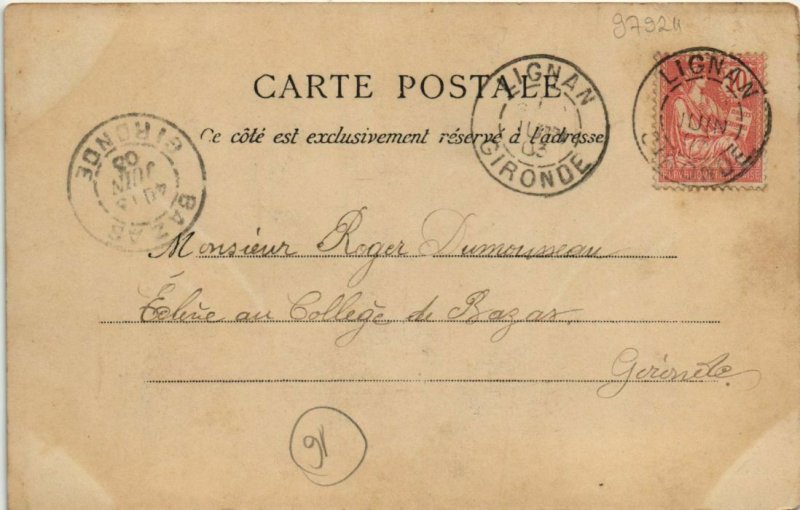 97924
CARTE POSTALE
Ce côté est exclusivement réservé à l'adresse
LIGNAN
JUIN
03
GIRONDE
LIGNAN
JUIN
GIRONDE
BAZAS
JUIN
03
GIRONDE
Monsieur Roger Dumousseau
Élève au Collège de Bazas
Gironde